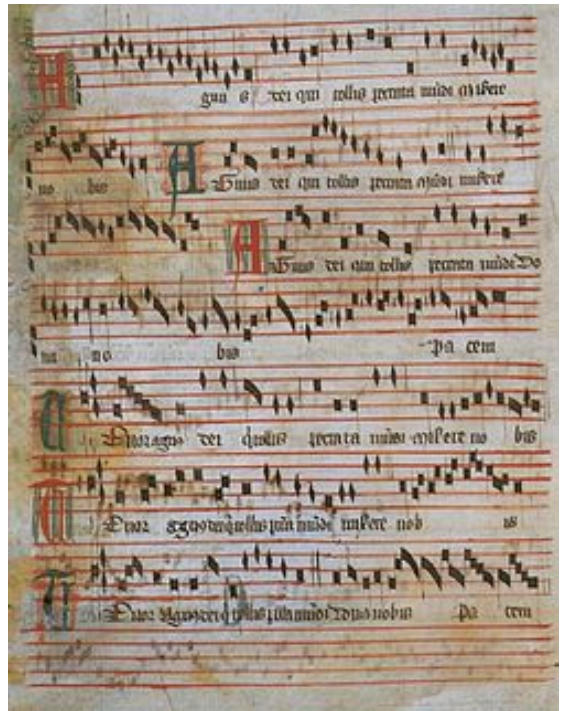 Agnus dei qui tollis peccata mūdi misere
no bis Agnus dei qui tollis peccata mūdi misere
Agnus dei qui tollis peccata mūdi Do
na no bis pa cem
Tenor agnus dei q tollis peccata mūdi miserere no bis
Tenor Agnus dei q tollis pctā mūdi miserere nob is
Tenor Agnus dei q tollis pctā mūdi dona nobis pa cem